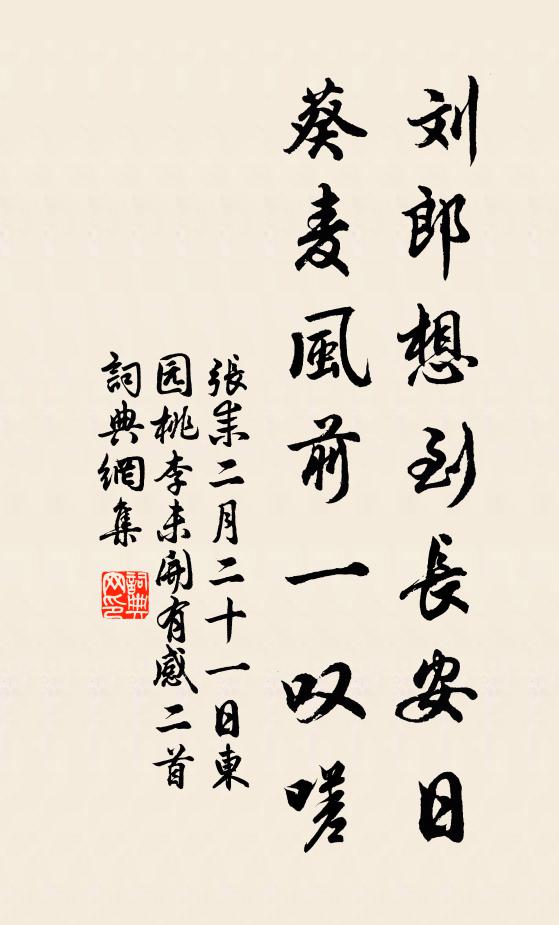 刘郎想到長安日
葵麦風前一叹嗟
張耒二月二十一日東
园桃李未開有感二首
詞典網集
詞典网印